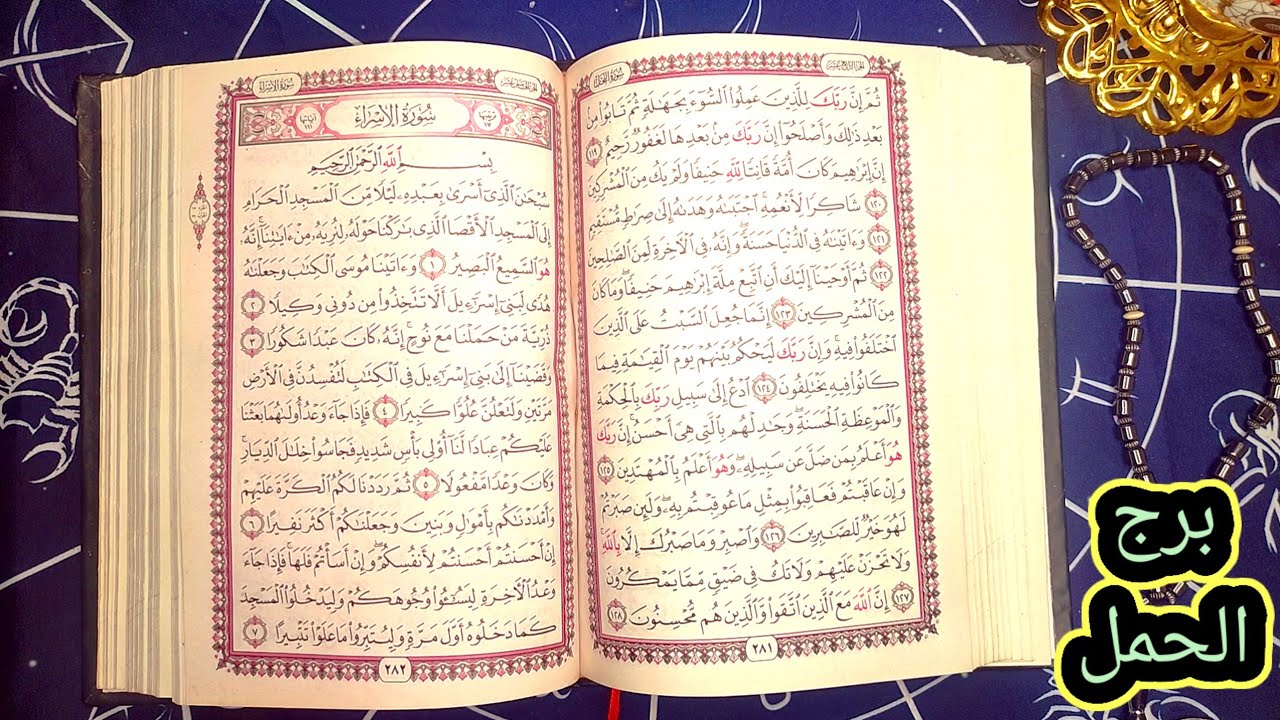 الجزء الرابع عشر
سورة النحل
ثُمَّ إِنَّ رَبَّكَ لِلَّذِينَ عَمِلُوا۟ ٱلسُّوٓءَ بِجَهَٰلَةٍ ثُمَّ تَابُوا۟ مِنۢ
بَعْدِ ذَٰلِكَ وَأَصْلَحُوٓا۟ إِنَّ رَبَّكَ مِنۢ بَعْدِهَا لَغَفُورٌ رَّحِيمٌ ١١٩
إِنَّ إِبْرَٰهِيمَ كَانَ أُمَّةً قَانِتًا لِّلَّهِ حَنِيفًا وَلَمْ يَكُ مِنَ ٱلْمُشْرِكِينَ
١٢٠ شَاكِرًا لِّأَنْعُمِهِ ٱجْتَبَىٰهُ وَهَدَىٰهُ إِلَىٰ صِرَٰطٍ مُّسْتَقِيمٍ
١٢١ وَءَاتَيْنَٰهُ فِى ٱلدُّنْيَا حَسَنَةً وَإِنَّهُۥ فِى ٱلْءَاخِرَةِ لَمِنَ ٱلصَّٰلِحِينَ
١٢٢ ثُمَّ أَوْحَيْنَآ إِلَيْكَ أَنِ ٱتَّبِعْ مِلَّةَ إِبْرَٰهِيمَ حَنِيفًا وَمَا كَانَ
مِنَ ٱلْمُشْرِكِينَ ١٢٣ إِنَّمَا جُعِلَ ٱلسَّبْتُ عَلَى ٱلَّذِينَ
ٱخْتَلَفُوا۟ فِيهِ وَإِنَّ رَبَّكَ لَيَحْكُمُ بَيْنَهُمْ يَوْمَ ٱلْقِيَٰمَةِ فِيمَا
كَانُوا۟ فِيهِ يَخْتَلِفُونَ ١٢٤ ٱدْعُ إِلَىٰ سَبِيلِ رَبِّكَ بِٱلْحِكْمَةِ
وَٱلْمَوْعِظَةِ ٱلْحَسَنَةِ وَجَٰدِلْهُم بِٱلَّتِى هِىَ أَحْسَنُ إِنَّ رَبَّكَ
هُوَ أَعْلَمُ بِمَن ضَلَّ عَن سَبِيلِهِۦ وَهُوَ أَعْلَمُ بِٱلْمُهْتَدِينَ ١٢٥
وَإِنْ عَاقَبْتُمْ فَعَاقِبُوا۟ بِمِثْلِ مَا عُوقِبْتُم بِهِۦ وَلَئِن صَبَرْتُمْ
لَهُوَ خَيْرٌ لِّلصَّٰبِرِينَ ١٢٦ وَٱصْبِرْ وَمَا صَبْرُكَ إِلَّا بِٱللَّهِ
وَلَا تَحْزَنْ عَلَيْهِمْ وَلَا تَكُ فِى ضَيْقٍ مِّمَّا يَمْكُرُونَ
١٢٧ إِنَّ ٱللَّهَ مَعَ ٱلَّذِينَ ٱتَّقَوا۟ وَّٱلَّذِينَ هُم مُّحْسِنُونَ ١٢٨
٢٨١
الجزء الخامس عشر
سورة الإسراء
ترتيبها ١٧
سُورَةُ الْإِسْرَاءِ
آياتها ١١١
بِسْمِ ٱللَّهِ ٱلرَّحْمَٰنِ ٱلرَّحِيمِ
سُبْحَٰنَ ٱلَّذِىٓ أَسْرَىٰ بِعَبْدِهِۦ لَيْلًا مِّنَ ٱلْمَسْجِدِ ٱلْحَرَامِ
إِلَى ٱلْمَسْجِدِ ٱلْأَقْصَا ٱلَّذِى بَٰرَكْنَا حَوْلَهُۥ لِنُرِيَهُۥ مِنْ ءَايَٰتِنَآ إِنَّهُۥ
هُوَ ٱلسَّمِيعُ ٱلْبَصِيرُ ١ وَءَاتَيْنَا مُوسَى ٱلْكِتَٰبَ وَجَعَلْنَٰهُ
هُدًى لِّبَنِىٓ إِسْرَٰٓءِيلَ أَلَّا تَتَّخِذُوا۟ مِن دُونِى وَكِيلًا ٢
ذُرِّيَّةَ مَنْ حَمَلْنَا مَعَ نُوحٍ إِنَّهُۥ كَانَ عَبْدًا شَكُورًا ٣
وَقَضَيْنَآ إِلَىٰ بَنِىٓ إِسْرَٰٓءِيلَ فِى ٱلْكِتَٰبِ لَتُفْسِدُنَّ فِى ٱلْأَرْضِ
مَرَّتَيْنِ وَلَتَعْلُنَّ عُلُوًّا كَبِيرًا ٤ فَإِذَا جَآءَ وَعْدُ أُولَىٰهُمَا بَعَثْنَا
عَلَيْكُمْ عِبَادًا لَّنَآ أُو۟لِى بَأْسٍ شَدِيدٍ فَجَاسُوا۟ خِلَٰلَ ٱلدِّيَارِ
وَكَانَ وَعْدًا مَّفْعُولًا ٥ ثُمَّ رَدَدْنَا لَكُمُ ٱلْكَرَّةَ عَلَيْهِمْ
وَأَمْدَدْنَٰكُم بِأَمْوَٰلٍ وَبَنِينَ وَجَعَلْنَٰكُمْ أَكْثَرَ نَفِيرًا ٦
إِنْ أَحْسَنتُمْ أَحْسَنتُمْ لِأَنفُسِكُمْ وَإِنْ أَسَأْتُمْ فَلَهَا فَإِذَا جَآءَ
وَعْدُ ٱلْءَاخِرَةِ لِيَسُۥٓـُٔوا۟ وُجُوهَكُمْ وَلِيَدْخُلُوا۟ ٱلْمَسْجِدَ
كَمَا دَخَلُوهُ أَوَّلَ مَرَّةٍ وَلِيُتَبِّرُوا۟ مَا عَلَوْا۟ تَتْبِيرًا ٧
٢٨٢
برج
الحمل